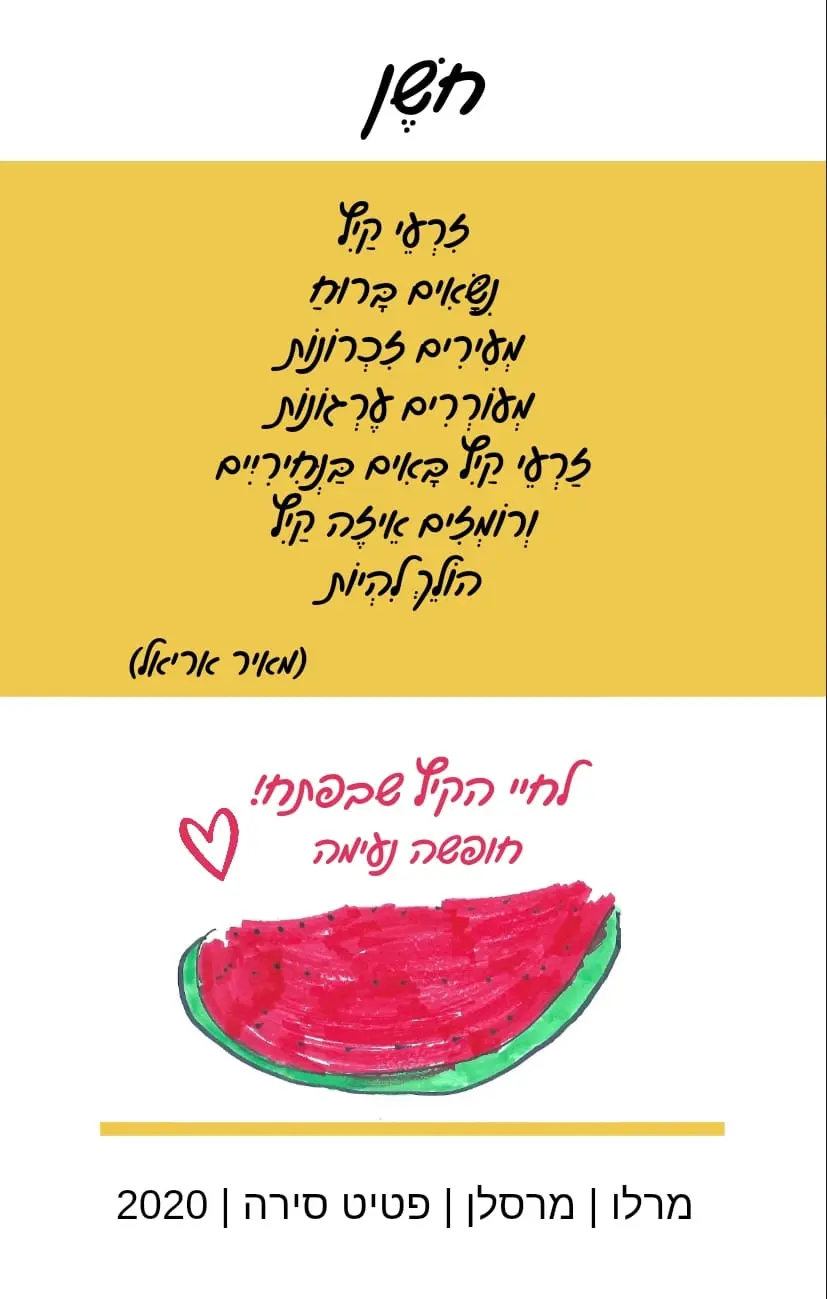 חֹשֶׁן
זִרְעֵי קַיִץ
נִשָּׂאִים בָּרוּחַ
מְעִירִים זִכְרוֹנוֹת
מְעוֹרְרִים עֶרְגוֹנוֹת
זַרְעֵי קַיִץ בָּאִים בַּנְּחִירַיִים
וְרוֹמְזִים אֵיזֶה קַיִץ
הוֹלֵךְ לִהְיוֹת
(מאיר אריאל)
לחיי הקיץ שבפתח!
חופשה נעימה
מרלו | מרסלן | פטיט סירה | 2020